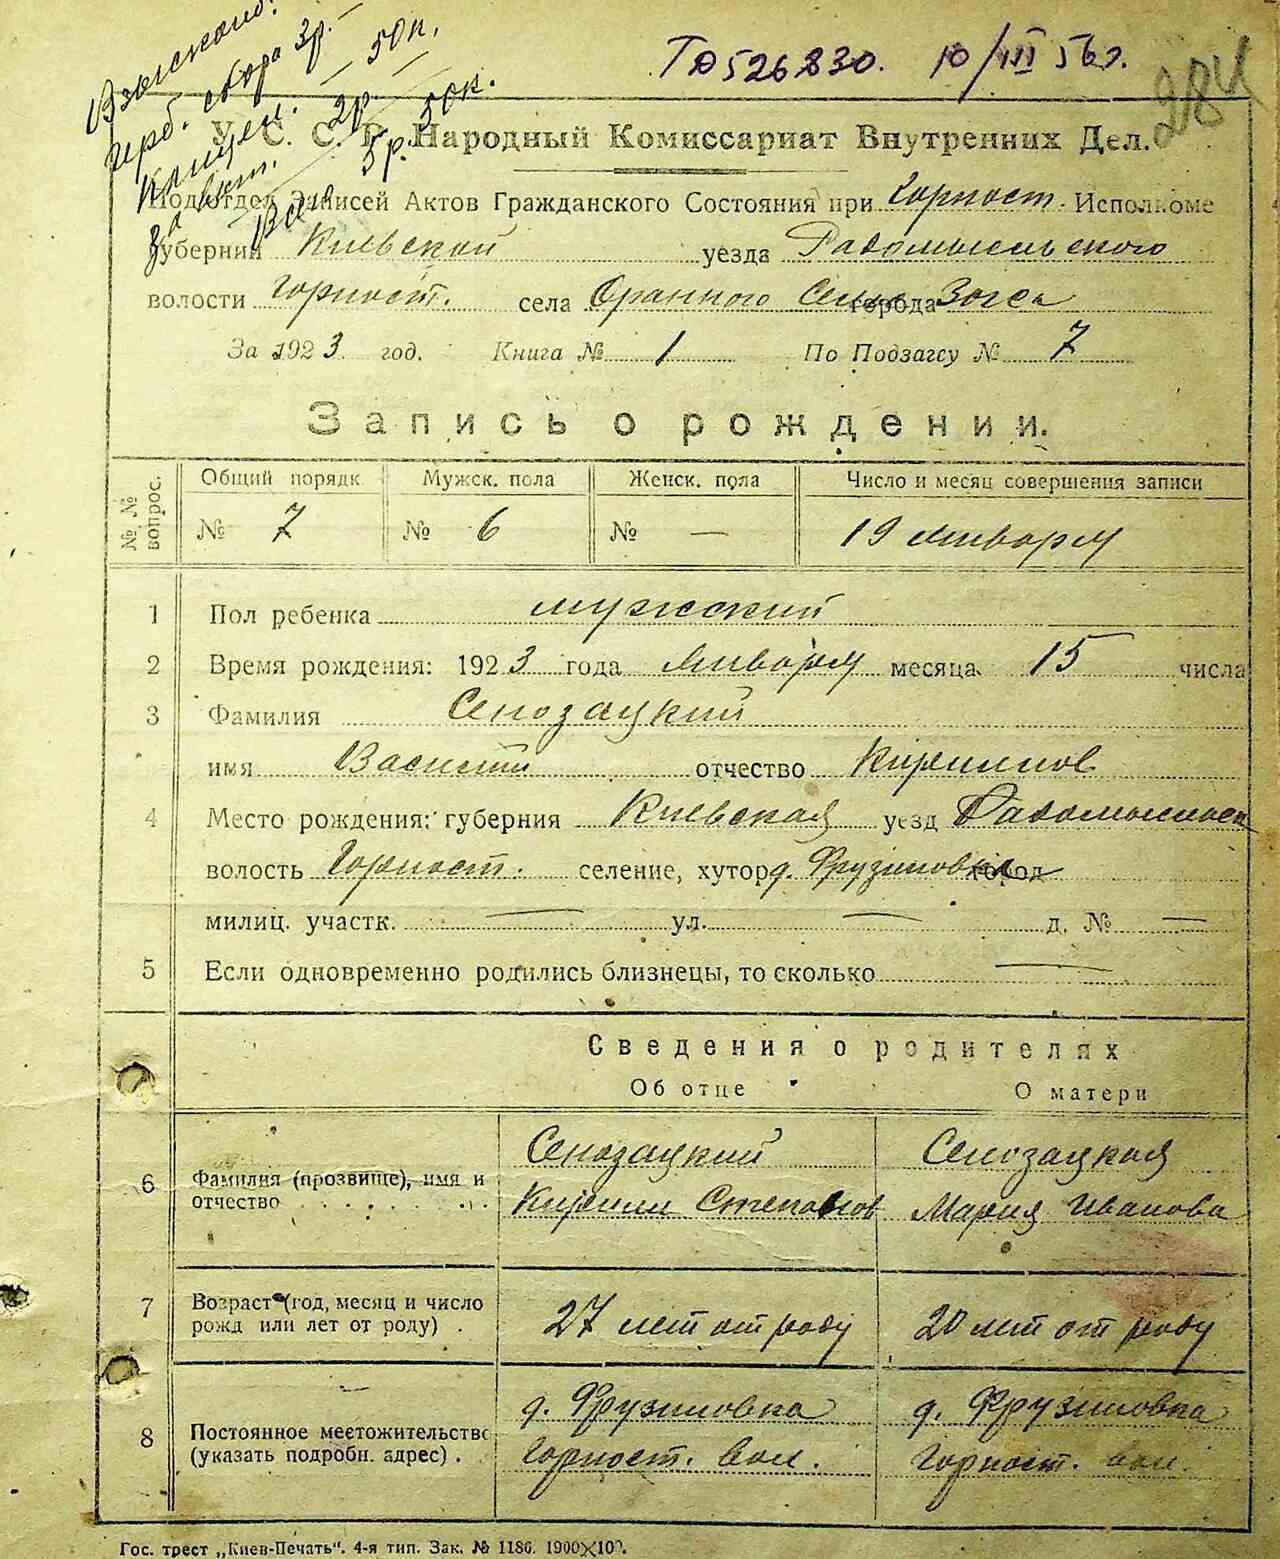 Взыскано:
герб. сбора 3р. —
Канцел. — 50к.
За акт. 2р. —
Всего 5р. 50к.
ТО526830. 10/III 56г.
284
У. С. С. Р. Народный Комиссариат Внутренних Дел.
Подотдел Записей Актов Гражданского Состояния при Горност. Исполкоме
Губернии Киевской уезда Радомысльского
волости Горност. села Оранного Сель города Загса
За 1923 год. Книга № 1 По Подзагсу № 7
Запись о рождении.
№ № вопрос. Общий порядк. Мужск. пола Женск. пола Число и месяц совершения записи
№ 7 № 6 № — 19 января
1 Пол ребенка мужской
2 Время рождения: 1923 года января месяца 15 числа
3 Фамилия Сенозацкий
имя Василий отчество Кириллов
4 Место рождения: губерния Киевская уезд Радомысльск
волость Горност. селение, хутор д. Фрузиновка город
милиц. участк. — ул. — д. № —
5 Если одновременно родились близнецы, то сколько —
Сведения о родителях
Об отце О матери
6 Фамилия (прозвище), имя и отчество Сенозацкий Сенозацкая
Кирилл Степанов Мария Иванова
7 Возраст (год, месяц и число рожд или лет от роду) . 27 лет от роду 20 лет от роду
8 Постоянное местожительство (указать подробн. адрес) . д. Фрузиновка д. Фрузиновка
Горност. вол. Горност. вол.
Гос. трест „Киев-Печать“. 4-я тип. Зак. № 1186. 1900×100.